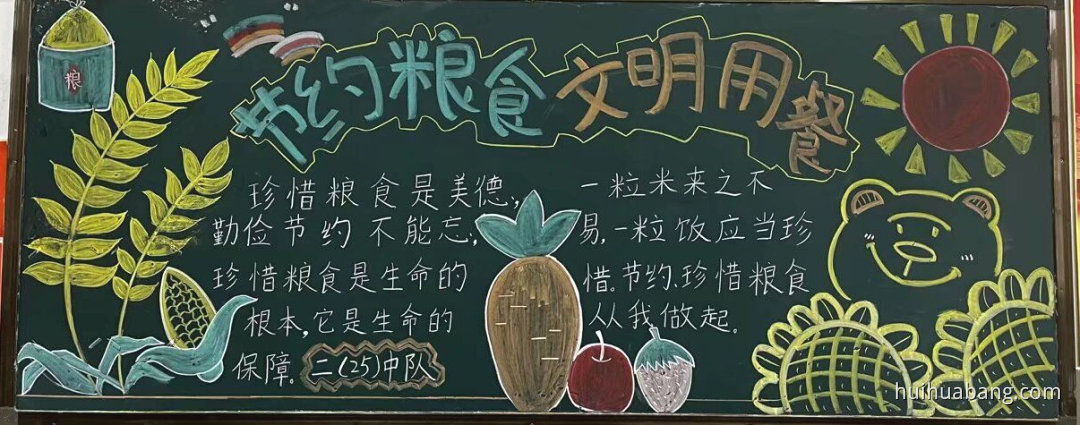 粮
节约粮食 文明用餐
珍惜粮食是美德;
勤俭节约 不能忘;
珍惜粮食是生命的
根本,它是生命的
保障。
二(25)中队
一粒米来之不
易,一粒饭应当珍
惜。节约、珍惜粮食
从我做起。
huihuabang.com